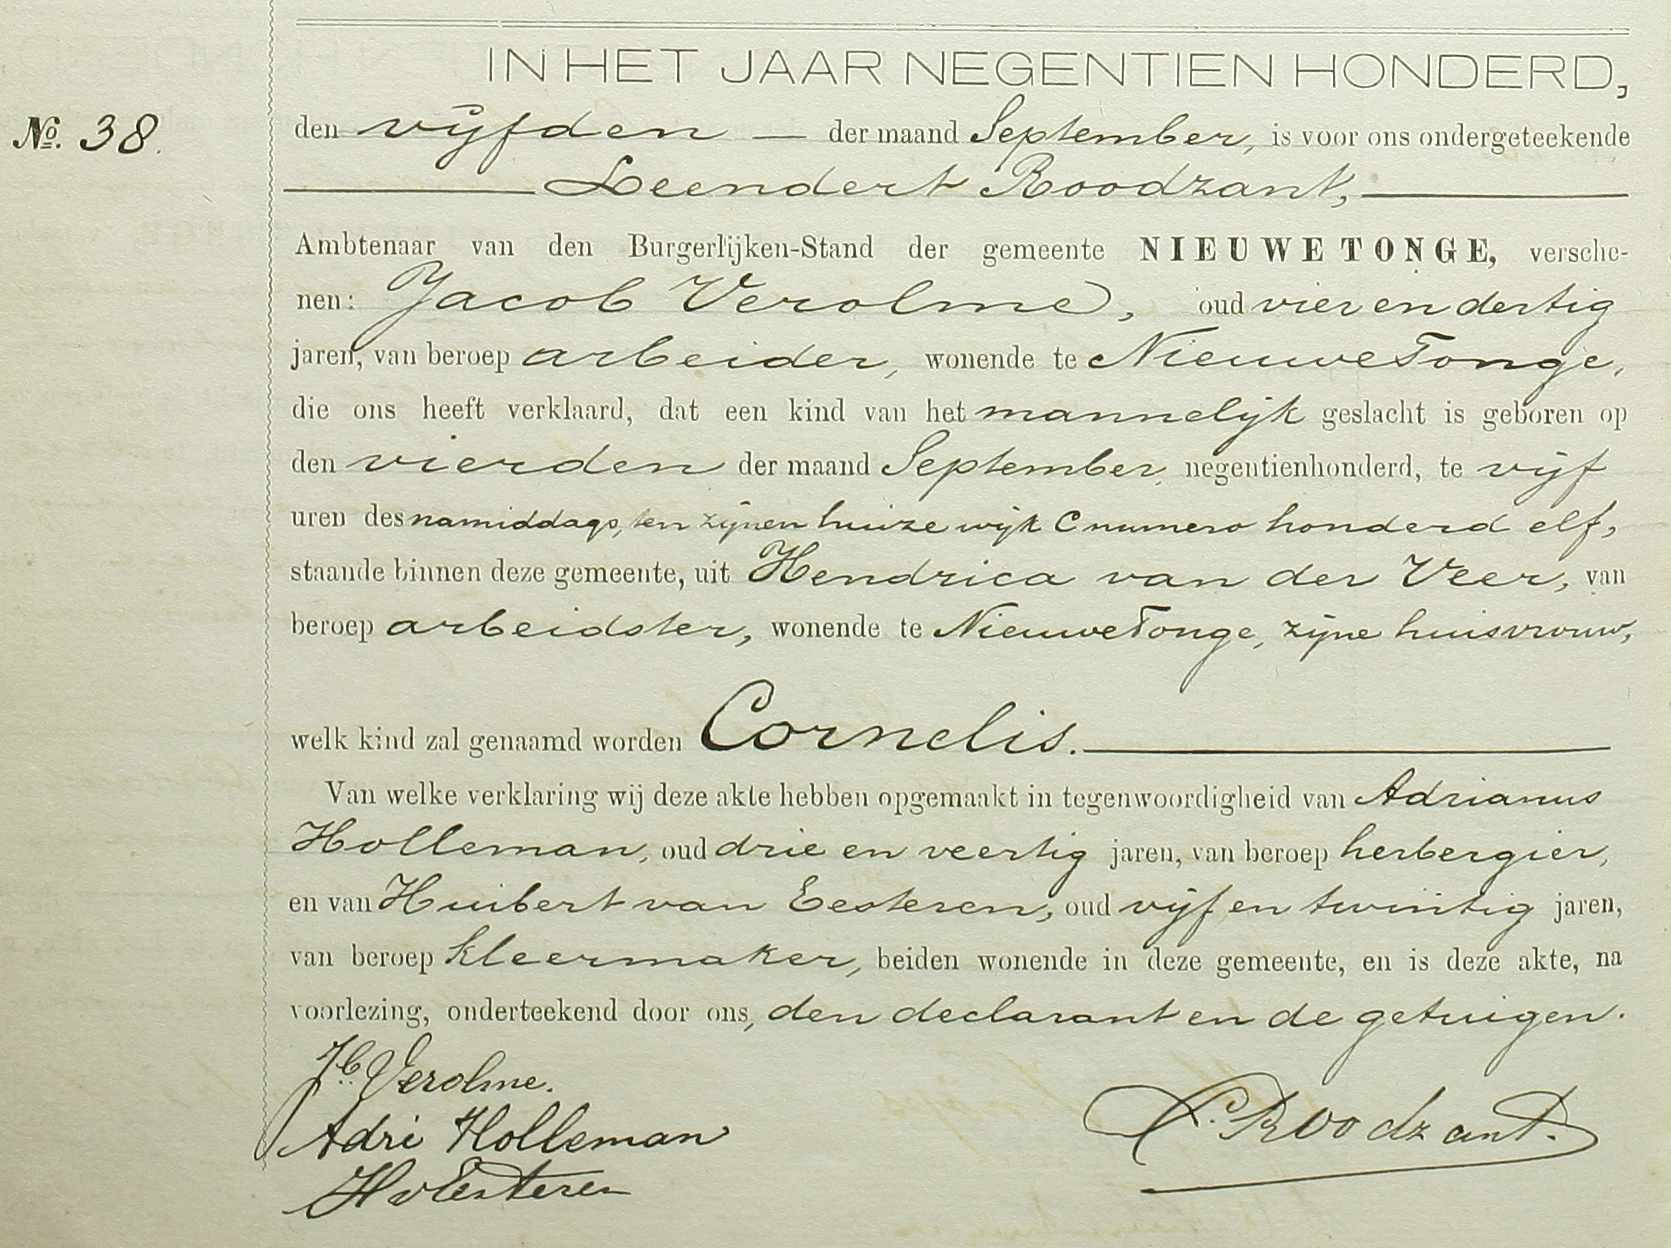 IN HET JAAR NEGENTIEN HONDERD,
No. 38.
den vijfden — der maand September, is voor ons ondergeteekende
Leendert Roodzant,
Ambtenaar van den Burgerlijken-Stand der gemeente NIEUWE TONGE, versche-
nen: Jacob Verolme, oud vier en dertig
jaren, van beroep arbeider, wonende te Nieuwe Tonge,
die ons heeft verklaard, dat een kind van het mannelijk geslacht is geboren op
den vierden der maand September, negentienhonderd, te vijf
uren des namiddags, ten zijnen huize wijk C numero honderd elf,
staande binnen deze gemeente, uit Hendrica van der Veer, van
beroep arbeidster, wonende te Nieuwe Tonge, zijne huisvrouw,
welk kind zal genaamd worden Cornelis.
Van welke verklaring wij deze akte hebben opgemaakt in tegenwoordigheid van Adrianus
Holleman, oud drie en veertig jaren, van beroep herbergier,
en van Huibert van Eesteren, oud vijf en twintig jaren,
van beroep kleermaker, beiden wonende in deze gemeente, en is deze akte, na
voorlezing, onderteekend door ons, den declarant en de getuigen.
Jb. Verolme.
Adri Holleman
L. Roodzant.
H v Eesteren